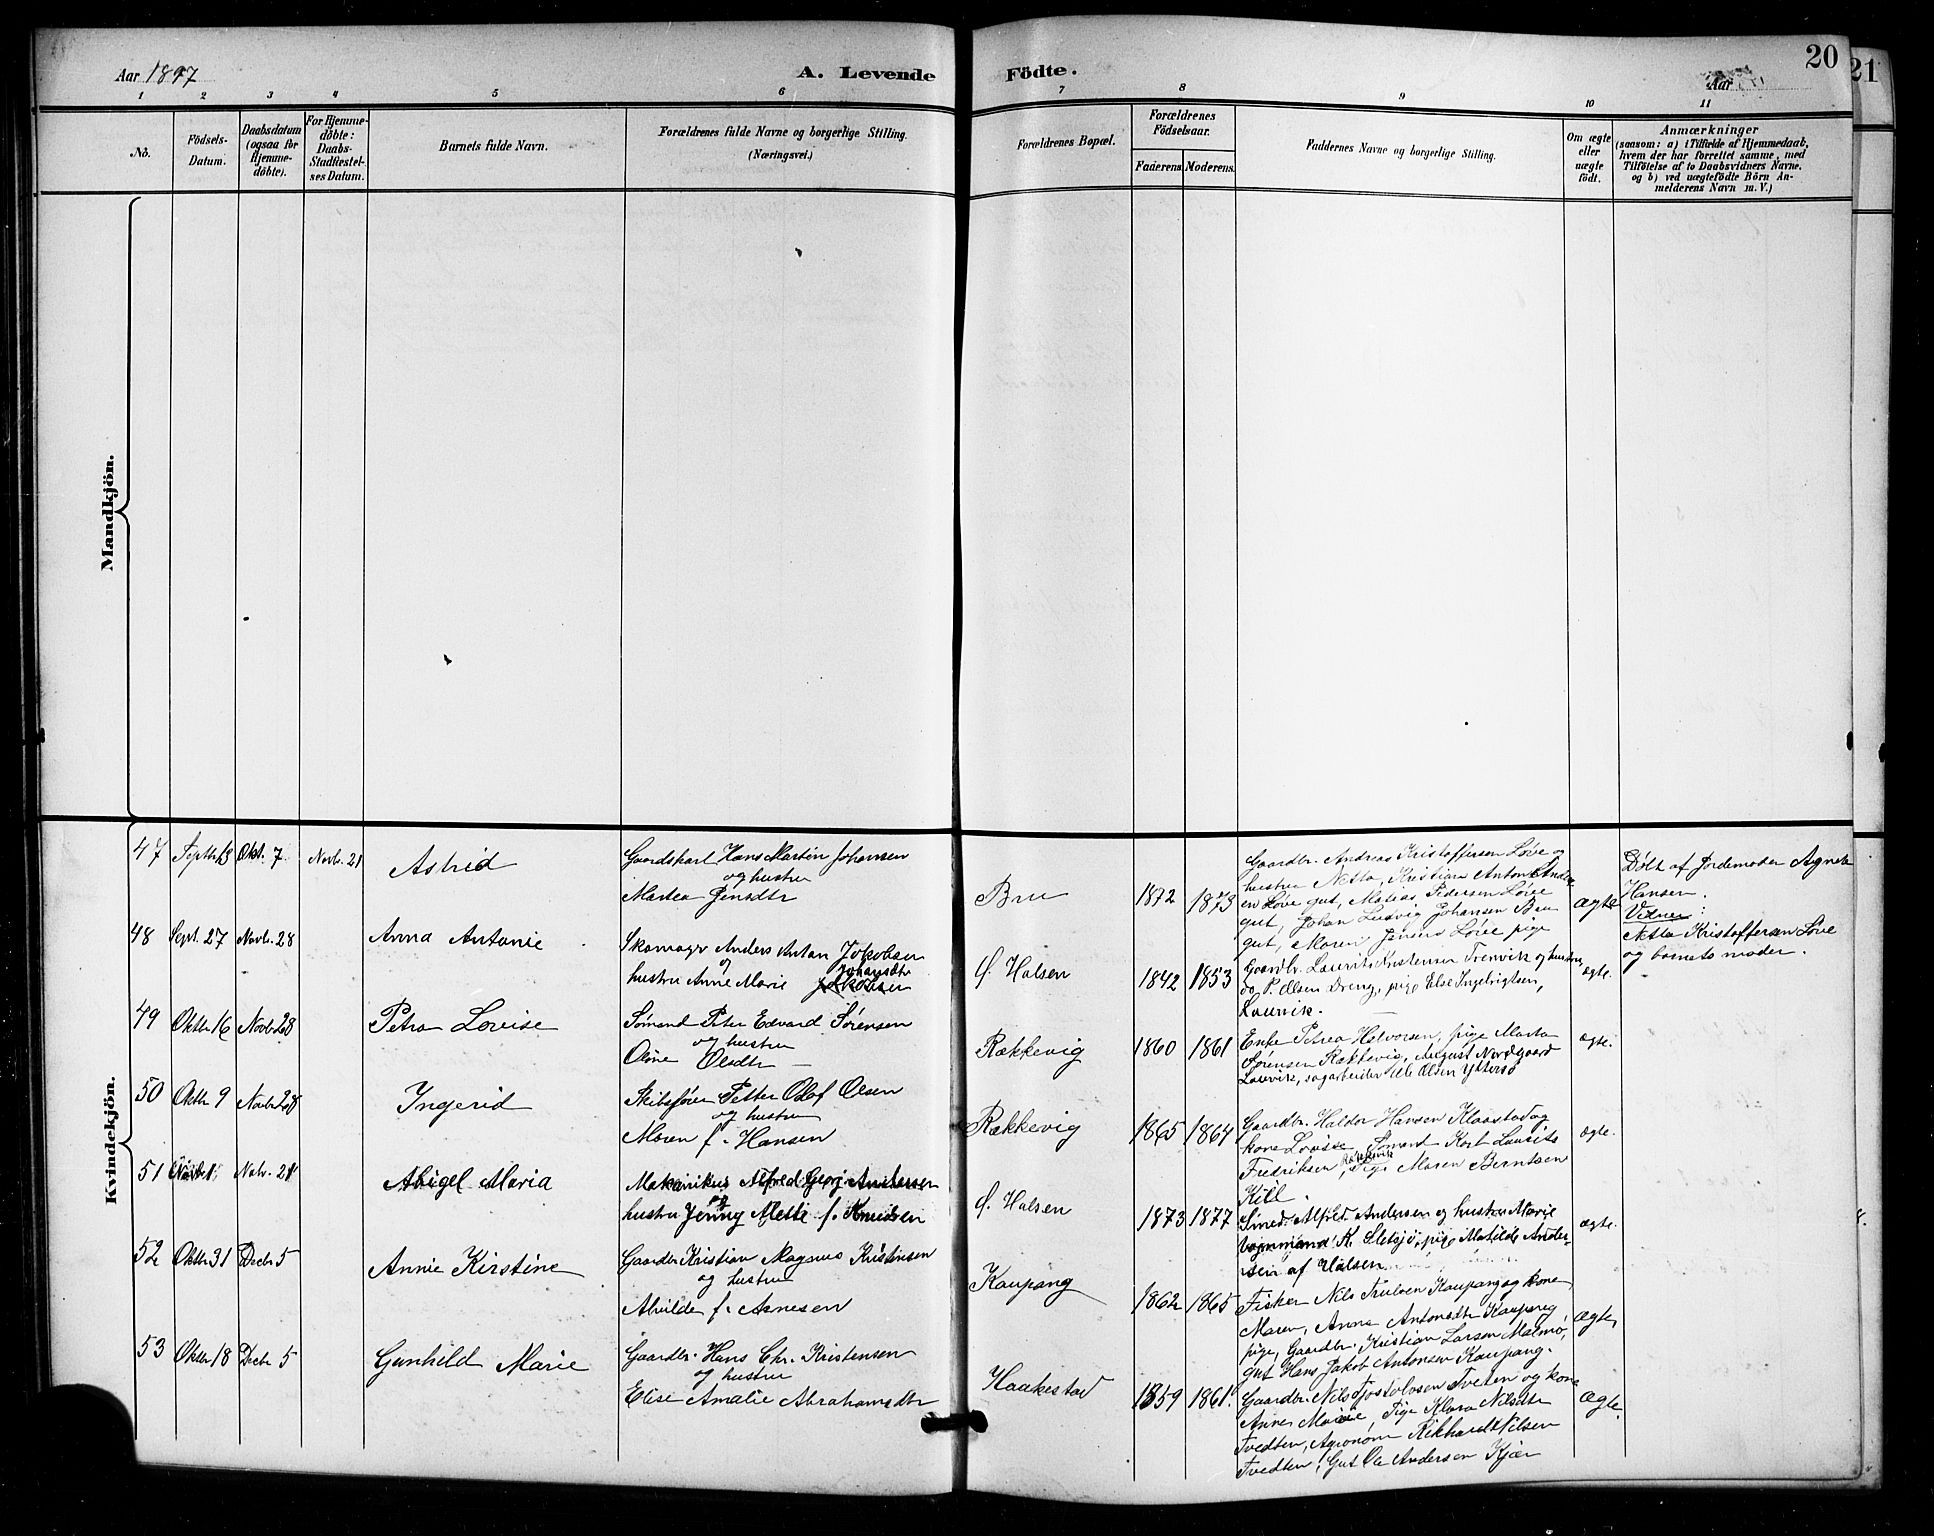 Aar 1897
A. Levende
Födte.
Aar
20
21
1
2
3
4
5
6
7
8
9
10
11
No.
Födsels-
Datum.
Daabsdatum
(ogsaa for
Hjemme-
döbte).
For Hjemme-
döbte:
Daabs-
Stadfestel-
ses Datum.
Barnets fulde Navn.
Forældrenes fulde Navne og borgerlige Stilling.
(Næringsvei.)
Forældrenes Bopæl.
Forældrenes
Födselsaar.
Faderens
Moderens.
Faddernes Navne og borgerlige Stilling.
Om ægte
eller
uægte
födt.
Anmærkninger
(saasom: a) i Tilfælde af Hjemmedaab,
hvem der har forrettet samme, med
Tilföielse af to Daabsvidners Navne,
og b) ved uægtefödte Börn An-
melderens Navn m. V.)
Mandkjön.
Kvindekjön.
47 Septbr 13 Okt. 7. Novbr. 21 Astrid
Gaardskarl Hans Martin Johansen
og hustru
Martea Jensdtr
Bru 1872 1873
Gaardbr. Andreas Kristoffersen Løve og
hustru Netta, Kristian Anton Ander
en Løve gut, Matias Pedersen Løve
gut, Johan Ludvig Johansen Bru
gut, Maren Jensens Løve pige
ægte
Døbt af Jordemoder Agnete
Hansen.
Vidner:
Netta Kristoffersen Løve
og barnets moder.
48 Sept. 27 Novbr. 28 Anna Antonie
Skomager Anders Anton Jakobsen
og Johansdtr
hustru Anne Marie Jakobsen
Ø. Halsen 1842 1853
Gaardbr. Laurits Kristensen Trenvik og hustru,
do P. Olsen Dreng, pige Else Ingebrigtsen,
Laurvik.
ægte.
49 Oktbr 16 Novbr 28 Petra Lovise
Sømand Peter Edvard Sørensen
og hustru
Oline Olsdtr
Rækkevig 1860 1861
Enke Petrea Halvorsen, pige Marta
Sørensen Rækkevig, August Nordgaard
Laurvik, sagarbeider Ole Olsen Yttersø
ægte.
50 Oktbr 9 Novbr 28 Ingerid
Skibsfører Petter Olaf Olsen
og hustru
Maren f. Hansen
Rækkevig 1865 1864
Gaardbr. Haldor Hansen Klaastad og
kone Lovise Sømand Karl Laurits
Fredriksen Rækkevik, Pige Maren Berntsen
Kill.
ægte.
51 Novbr 1 Nobr. 21 Abigel Maria
Mekanikus Alfred Georg Andersen
og
hustru Jenny Mette f. Knudsen
Ø. Halsen 1873 1877
Smed. Alfred Andersen og hustru Marie
K. Sletsjø, pige Matilde Ander-
sen af Halsen
ægte.
52 Oktbr 31 Decbr 5 Annie Kirstine
Gaardbr Kristian Magnus Kristensen
og hustru
Alvilde f. Arnesen
Kaupang 1862 1865
Fisker Nils Trulsen Kaupang og kone
Maren, Anna Antonsdtr Kaupang
pige, Gaardbr. Kristian Larsen Malmø,
gut Hans Jakob Antonsen Kaupang.
ægte,
53 Oktbr 18 Decbr 5 Gunhild Marie
Gaardbr. Hans Chr. Kristensen
og hustru
Elise Amalie Abrahamsdtr
Haakestad 1859 1861.
Gaardbr. Nils Tostolvsen Tveten og kone
Anne Marie, Pige Klara Nilsdtr
Tvedten, Agronom Rikhard Nilsen
Tvedten, Gut Ole Andersen Kjær
ægte.